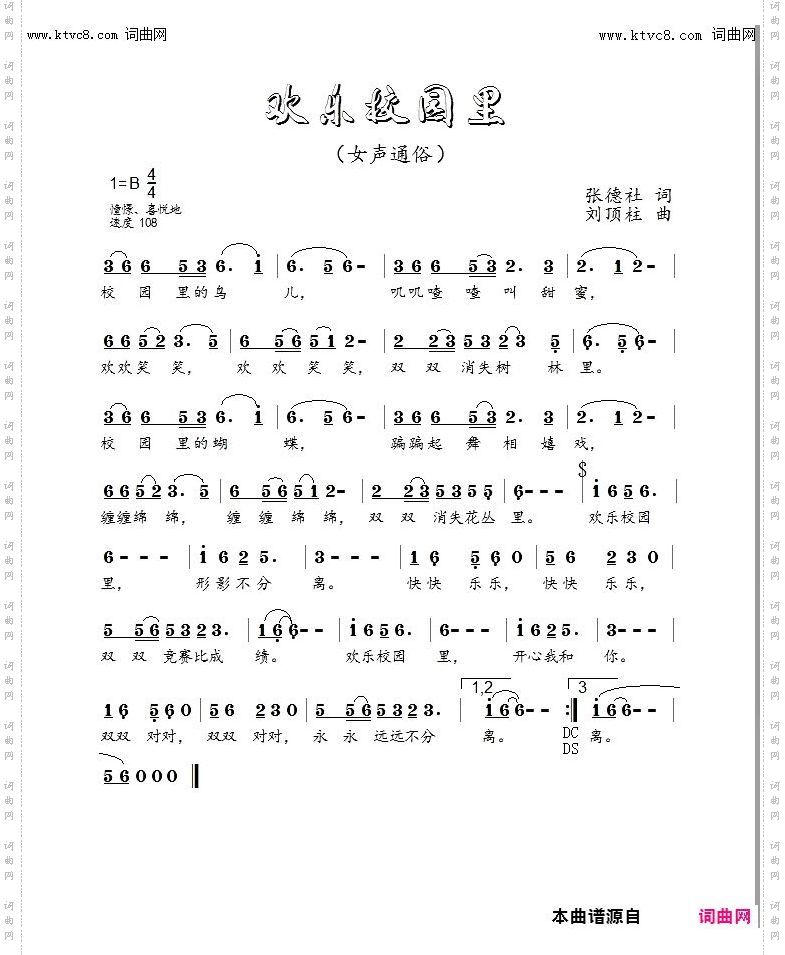 www.ktvc8.com 词曲网 www.ktvc8.com 词曲网
欢乐校园里
（女声通俗）
1=B 4/4
憧憬、喜悦地
速度 108
张德社 词
刘顶柱 曲
3 6 6 5 3 6. i | 6. 5 6 - | 3 6 6 5 3 2. 3 | 2. 1 2 - |
校 园 里的鸟 儿， 叽叽喳 喳 叫 甜 蜜，
6 6 5 2 3. 5 | 6 5 6 5 1 2 - | 2 2 3 5 3 2 3 5 | 6. 5 6 - |
欢欢笑 笑， 欢 欢 笑 笑， 双 双 消失树 林 里。
3 6 6 5 3 6. i | 6. 5 6 - | 3 6 6 5 3 2. 3 | 2. 1 2 - |
校 园 里的蝴 蝶， 蹁蹁起 舞 相 嬉 戏，
6 6 5 2 3. 5 | 6 5 6 5 1 2 - | 2 2 3 5 3 5 5 | 6 - - | i 6 5 6.
缠缠绵 绵， 缠 缠 绵 绵， 双 双 消失花丛 里。 欢乐校园
6 - - - | i 6 2 5. | 3 - - - | 1 6 5 6 0 | 5 6 2 3 0 |
里， 形影不分 离。 快快 乐乐， 快快 乐乐，
5 5 6 5 3 2 3. | 1 6 6 - - | i 6 5 6. | 6 - - - | i 6 2 5. | 3 - - - |
双 双 竞赛比成 绩。 欢乐校园 里， 开心我和 你。
1,2 3
1 6 5 6 0 | 5 6 2 3 0 | 5 5 6 5 3 2 3. | i 6 6 - - :| i 6 6 - - |
双双 对对， 双双 对对， 永 永 远远不分 离。 DC 离。
DS
5 6 0 0 0
本曲谱源自 词曲网